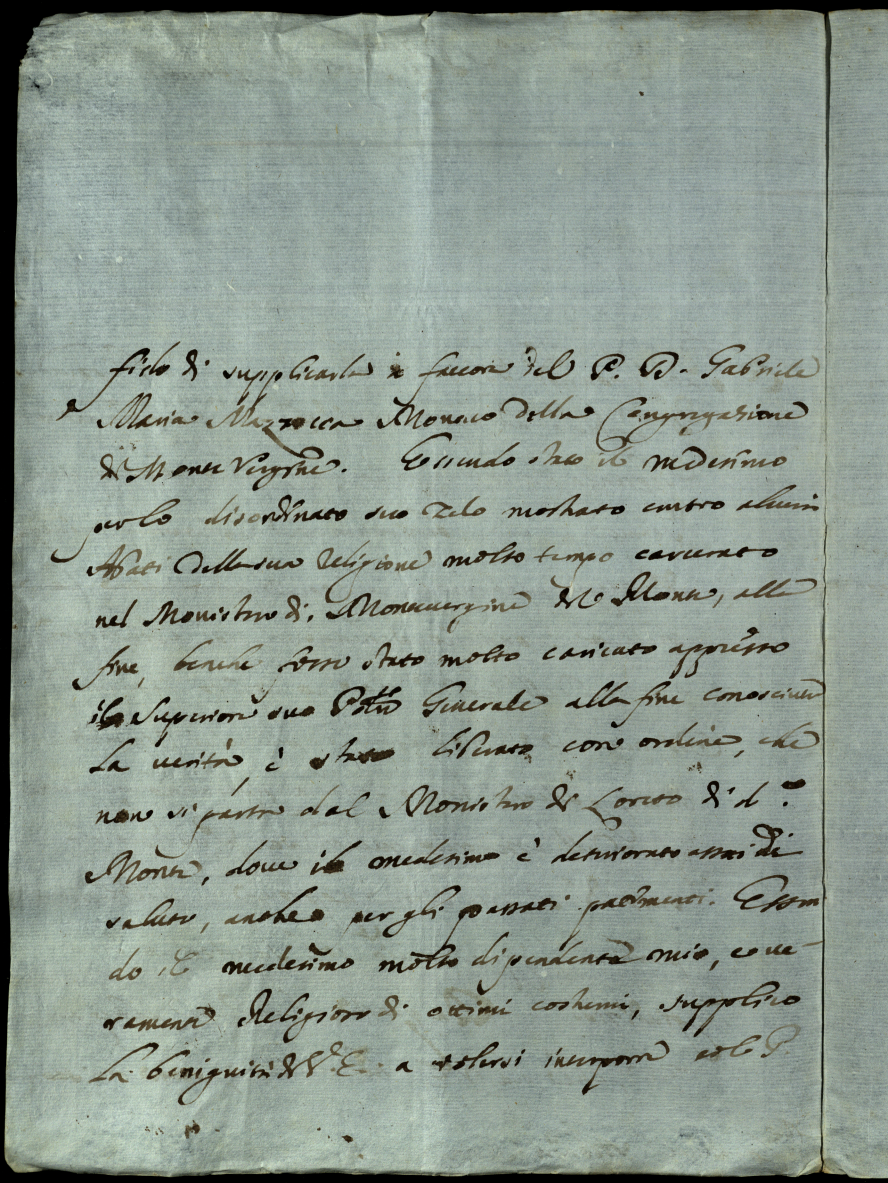 fido di supplicarla in favore del P. D. Gabriele
Maria Mazzocca Monaco della Congregazione
di Monte Vergine. Essendo stato il medesimo
per lo disordinato suo zelo mostrato contro alcuni
Abati della sua Religione molto tempo carcerato
nel Monistero di Montevergine del Monte, alla
fine, benche fosse stato molto caricato appresso
il Superiore suo Generale alla fine conosciuta
la verità, è stato liberato con ordine, che
non si parta dal Monistero di Loreto di d.º
Monte, dove il medesimo è deteriorato assai di
salute, anche per gli passati patimenti. Essen
do il medesimo molto dipendente mio, e ve-
ramente Religioso di ottimi costumi, supplico
la benignità di V. E. a volersi interporre col P